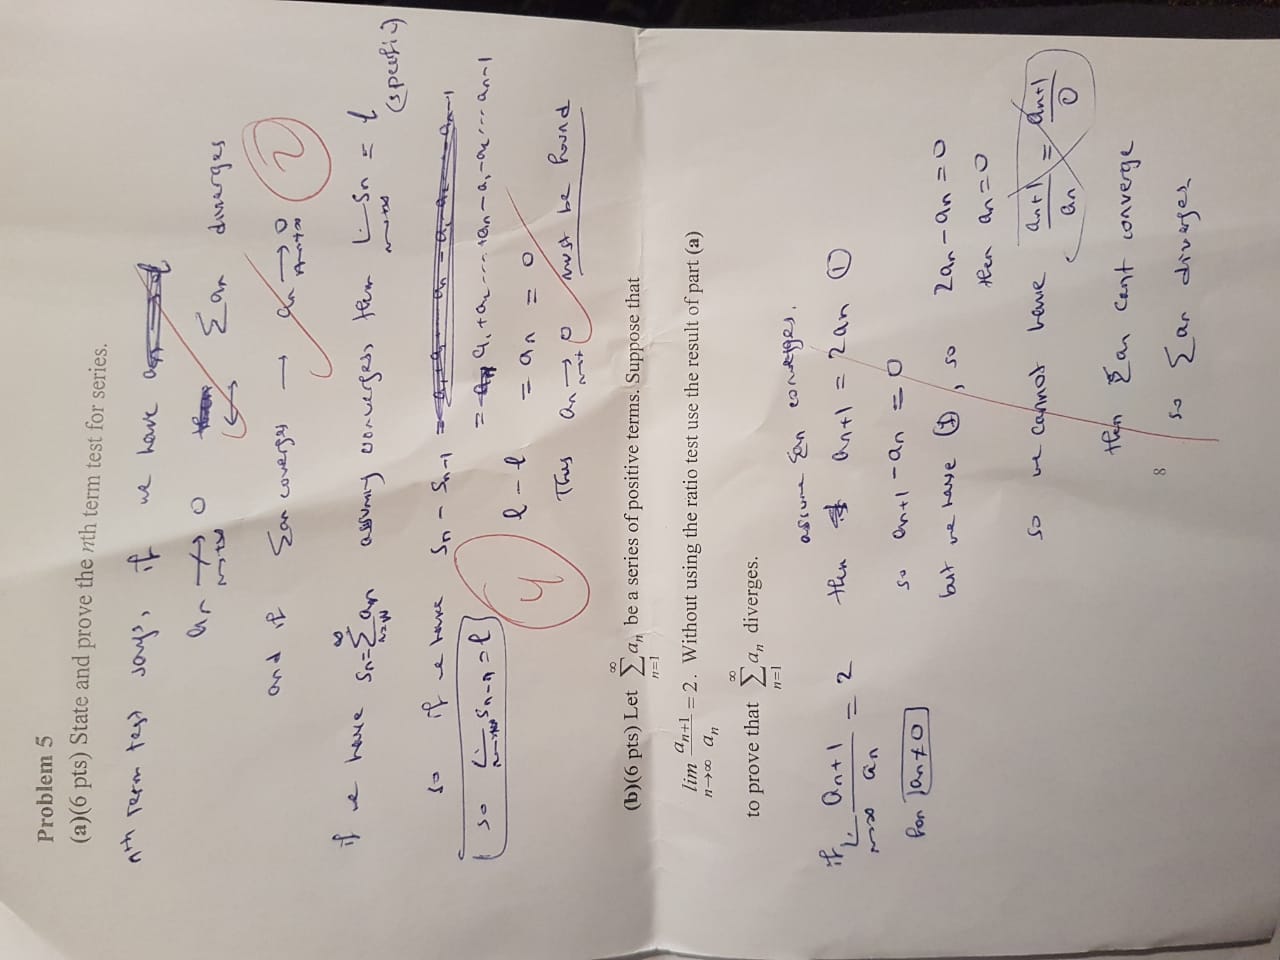 Problem 5
(a)(6 pts) State and prove the nth term test for series.
nth term test says, if we have
an ↛ 0 n→∞ ← Σan diverges
and if Σan coverges → an → 0 n→∞ 2
if we have Sn = Σ an assuming converges then L Sn = l n→∞ (specific)
so if we have Sn - Sn-1 = a1 + a2 ---- + an - a1 - a2 ---- an-1
so L Sn-1 = l n→∞
l - l = an = 0
4
Thus an → 0 must be found n→∞
(b)(6 pts) Let ∞ Σ n=1 an be a series of positive terms. Suppose that
lim n→∞ an+1/an = 2. Without using the ratio test use the result of part (a)
to prove that ∞ Σ n=1 an diverges.
assume Σan converges.
if L n→∞ an+1/an = 2 then an+1 = 2an ①
for an ≠ 0 so an+1 - an = 0
but we have ①, so 2an - an = 0
then an = 0
so we cannot have an+1/an = an+1/0
then Σan cant converge
so Σan diverges
8